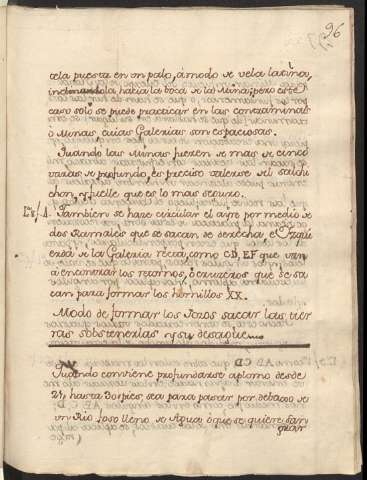 96
cela puesta en un palo, á modo de vela latina,
inclinandola hacia la boca de la Mina; pero este
caso solo se puede practicar en las contraminas
ò Minas, cuias Galerias son espaciosas.
Quando las Minas fueren de mas de cinco
varas de profundo, es preciso valerse del salchi
chon, y fuelle que es lo mas seguro.
Tambien se hace circular el ayre por medio de
dos Ramales que se sacan de derecha è Izqui
erda de la Galeria recta, como CD, EF que van
á encontrar los retornos, ò cruzeros que se sa
can para formar los hornillos XX.
Modo de formar los Pozos sacar las tier
ras sobstenerlas y su desague
Quando conviene profundarse aplomo desde
24, hasta 30 pies, sea para pasar por debaxo de
un Rio, foso lleno de Agua, ò que se quiere San
grar